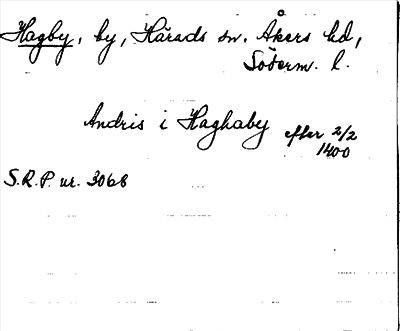 Hagby, by, Härads sn. Åkers hd,
Söderm. l.
Andris i Haghaby efter 2/2
1400
S.R.P. nr. 3068